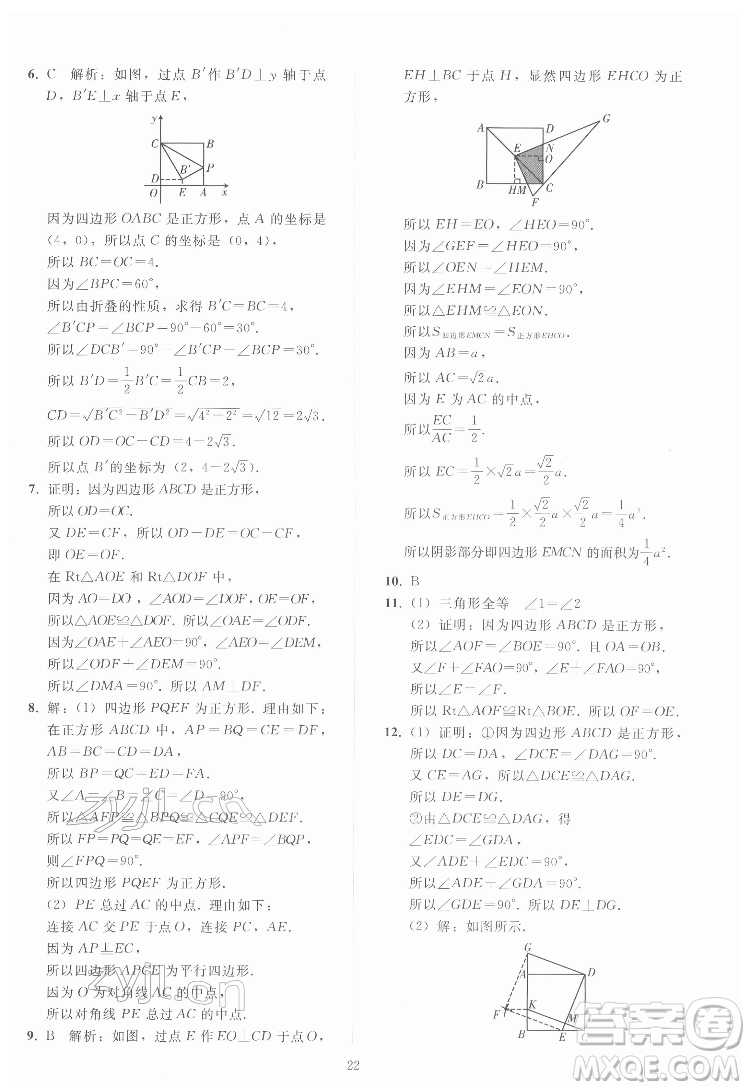 6. C 解析：如图，过点 B′作 B′D⊥y 轴于点
D，B′E⊥x 轴于点 E，
y
C B
B′ P
D
O E A x
因为四边形 OABC 是正方形，点 A 的坐标是
(4，0)，所以点 C 的坐标是 (0，4)，
所以 BC=OC=4.
因为∠BPC=60°，
所以由折叠的性质，求得 B′C=BC=4，
∠B′CP=∠BCP=90°-60°=30°.
所以∠DCB′=90°-30°-30°=30°.
所以 B′D=1/2 B′C=1/2 CB=2，
CD=√(B′C²-B′D²)=√(4²-2²)=√12=2√3.
所以 OD=OC-CD=4-2√3.
所以点 B′的坐标为 (2，4-2√3).
7. 证明：因为四边形 ABCD 是正方形，
所以 OD=OC.
又 DE=CF，所以 OD-DE=OC-CF，
即 OE=OF.
在 Rt△AOE 和 Rt△DOF 中，
因为 AO=DO，∠AOD=∠DOF，OE=OF，
所以△AOE≌△DOF. 所以∠OAE=∠ODF.
因为∠OAE+∠AEO=90°，∠AEO=∠DEM，
所以∠ODF+∠DEM=90°.
所以∠DMA=90°. 所以 AM⊥DF.
8. 解：(1) 四边形 PQEF 为正方形. 理由如下：
在正方形 ABCD 中，AP=BQ=CE=DF，
AB=BC=CD=DA，
所以 BP=QC=ED=FA.
又∠A=∠B=∠C=∠D=90°，
所以△AFP≌△BPQ≌△CQE≌△DEF.
所以 FP=PQ=QE=EF，∠APF=∠BQP，
则∠FPQ=90°.
所以四边形 PQEF 为正方形.
(2) PE 总过 AC 的中点. 理由如下：
连接 AC 交 PE 于点 O，连接 PC，AE.
因为 AP⊥EC，
所以四边形 APCE 为平行四边形.
因为 O 为对角线 AC 的中点，
所以对角线 PE 总过 AC 的中点.
9. B 解析：如图，过点 E 作 EO⊥CD 于点 O，
EH⊥BC 于点 H，显然四边形 EHCO 为正
方形，
A D G
E N
O
B H M C
F
所以 EH=EO，∠HEO=90°.
因为∠GEF=∠HEO=90°，
所以∠OEN=∠HEM.
因为∠EHM=∠EON=90°，
所以△EHM≌△EON.
所以S四边形EMCN=S正方形EHCO.
因为 AB=a，
所以 AC=√2a.
因为 E 为 AC 的中点，
所以EC/AC=1/2.
所以 EC=1/2×√2a=√2/2 a.
所以S正方形EHCO=1/2×√2/2 a×√2/2 a=1/4 a².
所以阴影部分即四边形 EMCN 的面积为1/4 a².
10. B
11. (1) 三角形全等 ∠1=∠2
(2) 证明：因为四边形 ABCD 是正方形，
所以∠AOF=∠BOE=90°. 且 OA=OB.
又∠F+∠FAO=90°，∠E+∠FAO=90°，
所以∠F=∠E.
所以 Rt△AOF≌Rt△BOE. 所以 OF=OE.
12. (1) 证明：①因为四边形 ABCD 是正方形，
所以 DC=DA，∠DCE=∠DAG=90°.
又 CE=AG，所以△DCE≌△DAG.
所以 DE=DG.
②由△DCE≌△DAG，得
∠EDC=∠GDA，
又∠ADE+∠EDC=90°，
所以∠ADE+∠GDA=90°.
所以∠GDE=90°. 所以 DE⊥DG.
(2) 解：如图所示.
G
A D
F K M
B E
22
zyjl.cn
zyjl.cn
答案卷
MXQE.COM